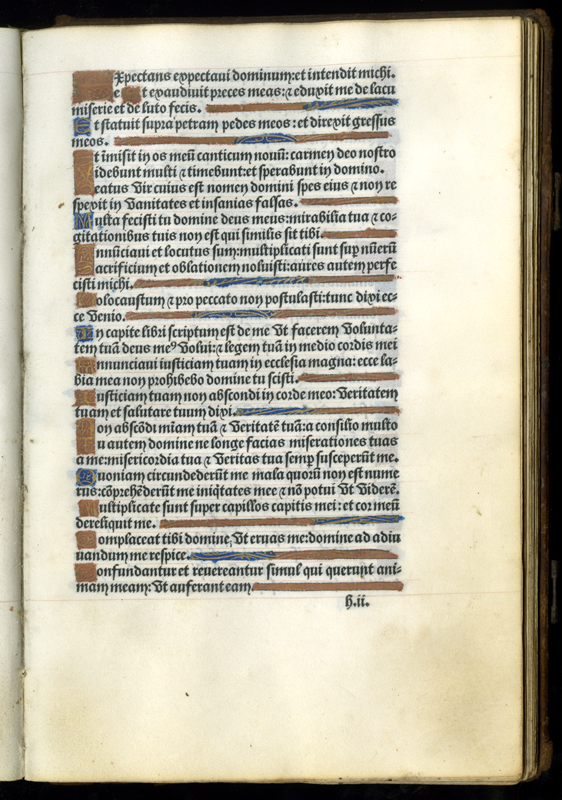 Expectans expectaui dominum: et intendit michi.
Et exaudiuit preces meas: ⁊ eduxit me de lacu
miserie et de luto fecis.
Et statuit supra petram pedes meos: et direxit gressus
meos.
Et īmisit in os meū canticum nouū: carmen deo nostro
Videbunt multi ⁊ timebunt: et sperabunt in domino.
Beatus vir cuius est nomen domini spes eius ⁊ non re
spexit in vanitates et insanias falsas.
Multa fecisti tu domine deus meus: mirabilia tua ⁊ co-
gitationibus tuis non est qui similis sit tibi.
Annūciaui et locutus sum: multiplicati sunt suꝑ nūerū
Sacrificium et oblationem noluisti: aures autem perfe
cisti michi.
Holocaustum ⁊ pro peccato non postulasti: tunc dixi ec-
ce venio.
In capite libri scriptum est de me vt facerem volunta-
tem tuā deus meꝰ volui: ⁊ legem tuā in medio cordis mei
Annunciaui iusticiam tuam in ecclesia magna: ecce la-
bia mea non prohibebo domine tu scisti.
Iusticiam tuam non abscondi in corde meo: veritatem
tuam et salutare tuum dixi.
Non abscōdi mīam tuā ⁊ veritatē tuā: a consilio multo
Tu autem domine ne longe facias miserationes tuas
a me: misericordia tua ⁊ veritas tua semꝑ susceperūt me.
Quoniam circundederūt me mala quorū non est nume
rus: cōprehēderūt me iniq̄tates mee ⁊ nō potui vt viderē.
Multiplicate sunt super capillos capitis mei: et cor meū
dereliquit me.
Complaceat tibi domine, vt eruas me: domine ad adiu
uandum me respice.
Confundantur et reuereantur simul qui querunt ani-
mam meam: vt auferant eam
h.ii.